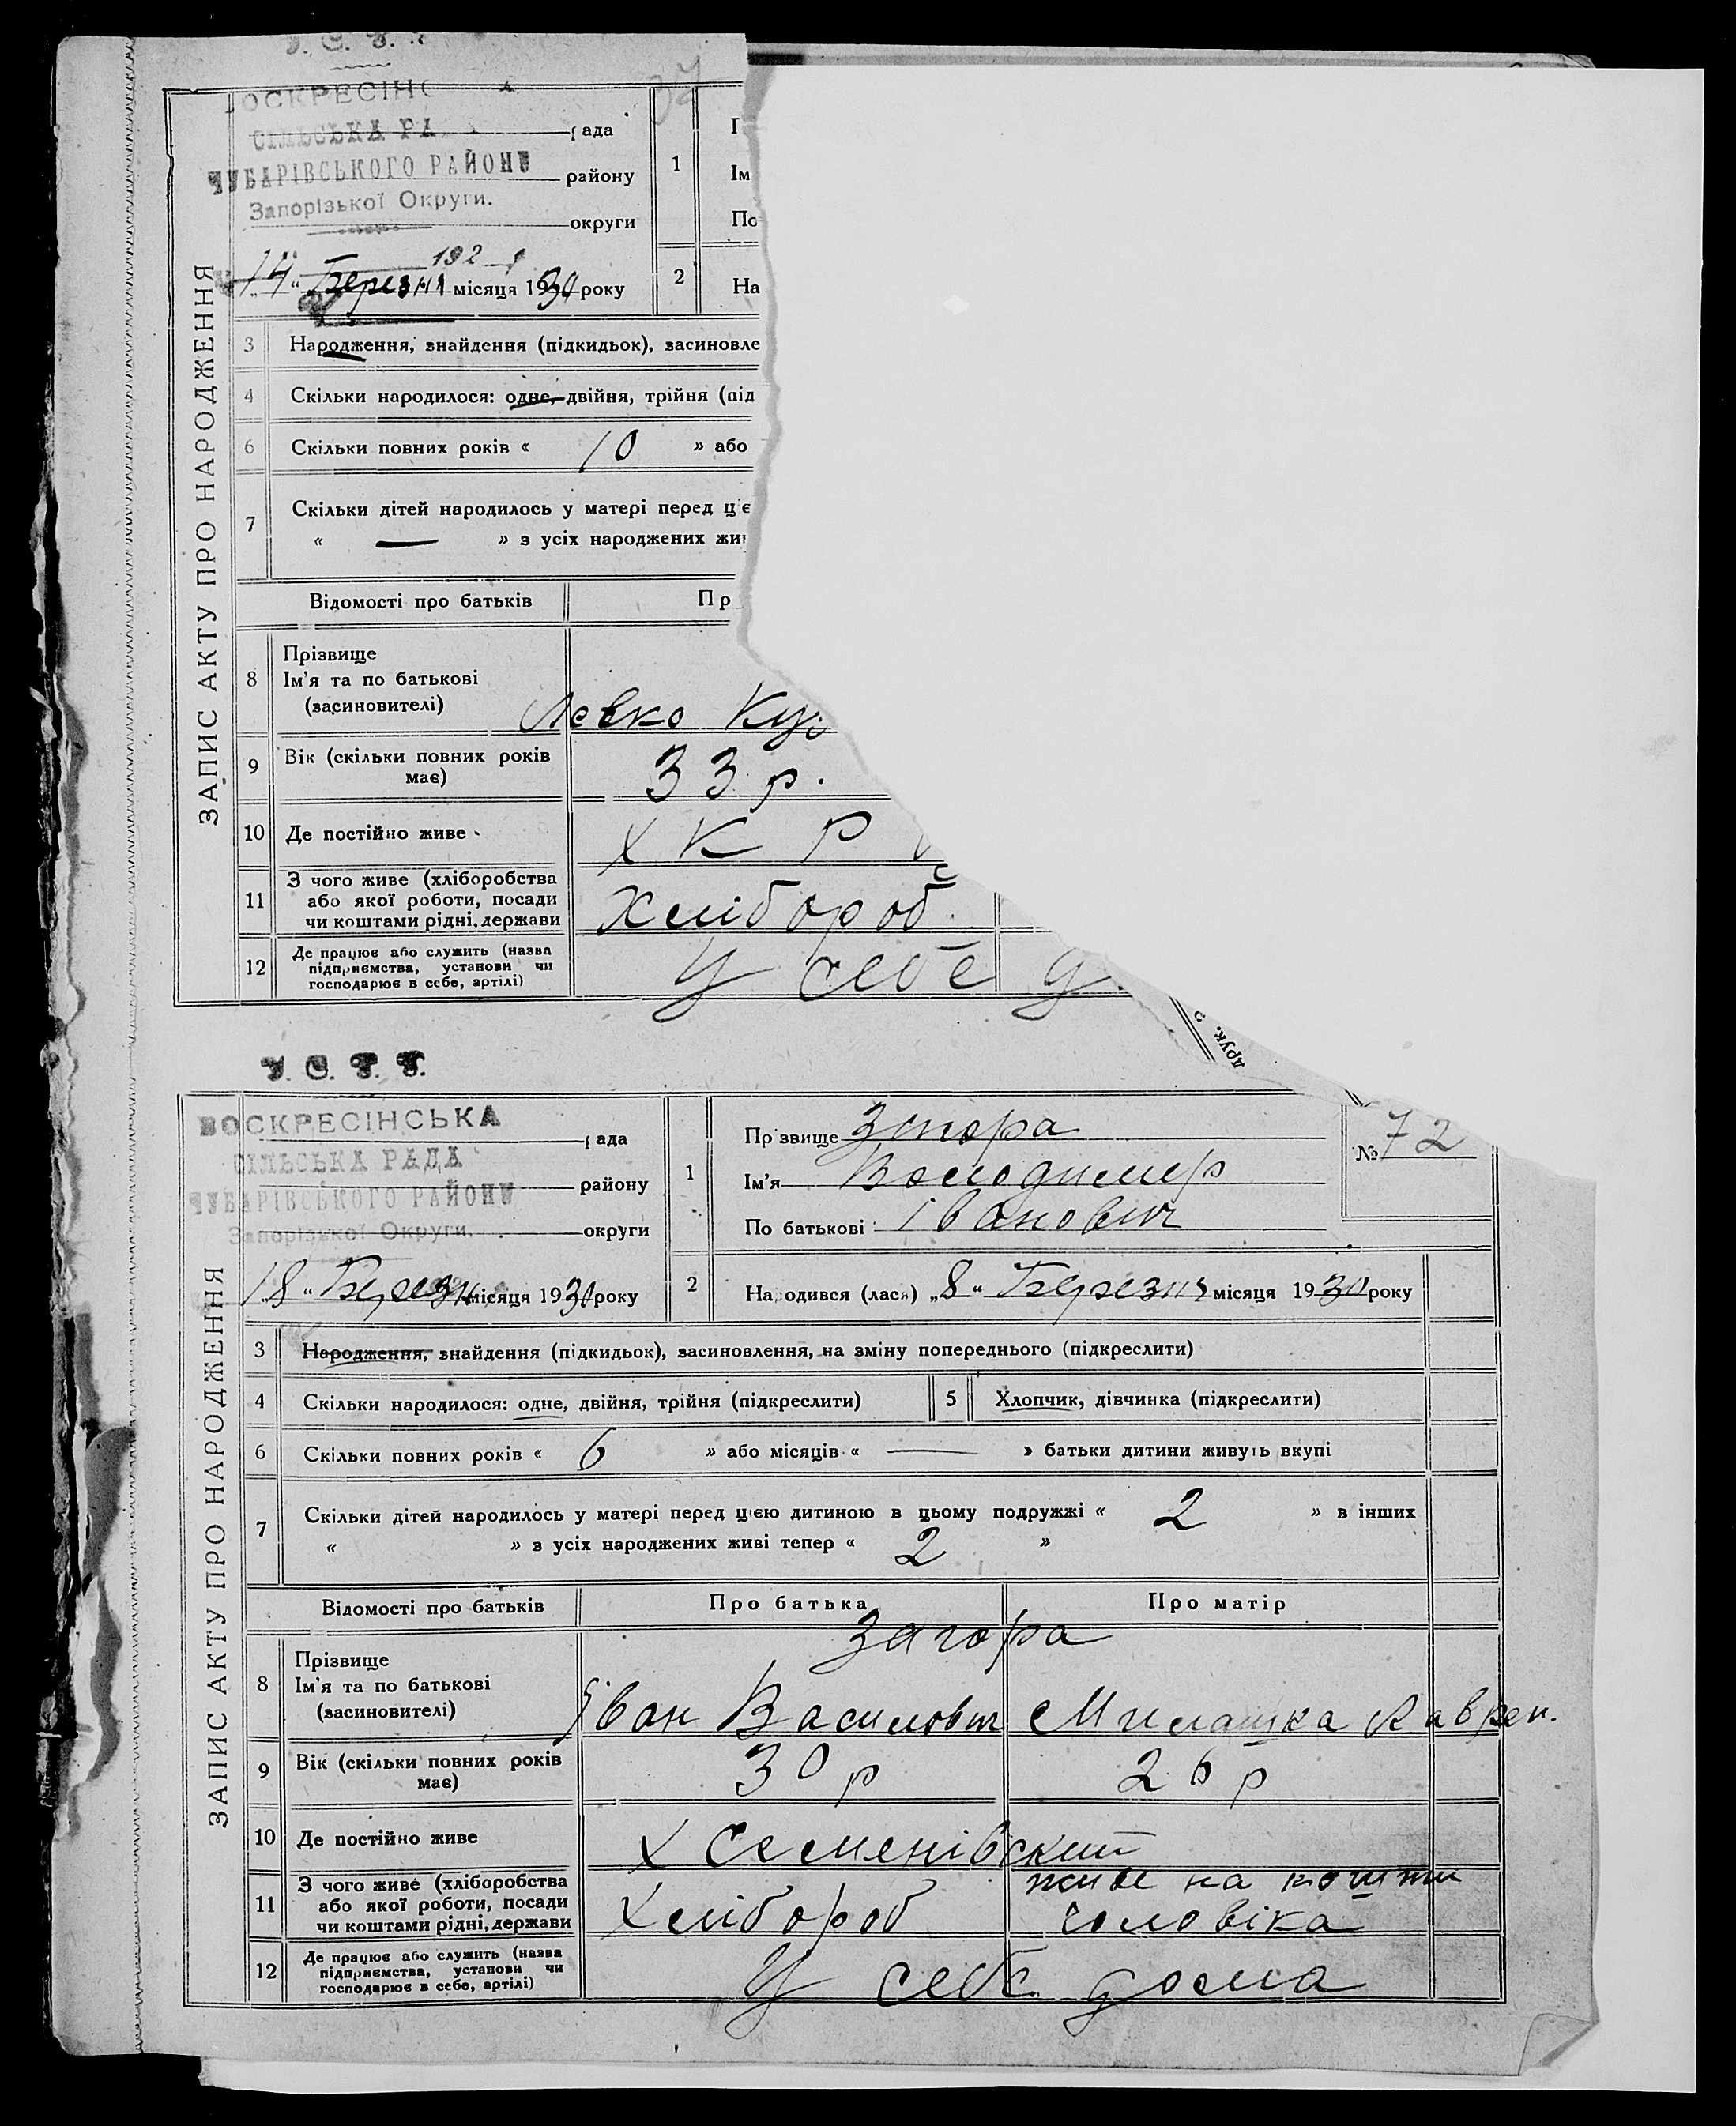 У. С. Р. Р.
ВОСКРЕСІНСЬКА
СІЛЬСЬКА РА рада
ЧУБАРІВСЬКОГО РАЙОНУ району
Запорізької Округи.
округи
1
Ім
По
192
14 " Березня місяця 1930 року
2
На
ЗАПИС АКТУ ПРО НАРОДЖЕННЯ
3 Народження, знайдення (підкидьок), засиновле
4 Скільки народилося: одне, двійня, трійня (під
6 Скільки повних років « 10 » або
7 Скільки дітей народилось у матері перед ціє
« — » з усіх народжених жи
Відомості про батьків Пр
8 Прізвище
Ім'я та по батькові
(засиновителі) Левко
9 Вік (скільки повних років має) 33 р.
10 Де постійно живе х К Р
11 З чого живе (хліборобства
або якої роботи, посади
чи коштами рідні, держави Хлібороб
12 Де працює або служить (назва
підприємства, установи чи
господарює в себе, артілі) У себе д
друк.
У. С. Р. Р.
ВОСКРЕСІНСЬКА рада
СІЛЬСЬКА РАДА
ЧУБАРІВСЬКОГО РАЙОНУ району
Запорізької Округи. округи
18 " Березня місяця 1930 року
1 Прізвище Загора
Ім'я Володимир
По батькові Іванович
№ 72
2 Народився (лася) „8" Березня місяця 1930 року
ЗАПИС АКТУ ПРО НАРОДЖЕННЯ
3 Народження, знайдення (підкидьок), засиновлення, на зміну попереднього (підкреслити)
4 Скільки народилося: одне, двійня, трійня (підкреслити) 5 Хлопчик, дівчинка (підкреслити)
6 Скільки повних років « 6 » або місяців « — » батьки дитини живуть вкупі
7 Скільки дітей народилось у матері перед цією дитиною в цьому подружжі « 2 » в інших
« » з усіх народжених живі тепер « 2 »
Відомості про батьків Про батька Про матір
Загора
8 Прізвище
Ім'я та по батькові
(засиновителі) Іван Василович Милашка Лаврен.
9 Вік (скільки повних років має) 30 р 26 р
10 Де постійно живе х Семенівский
11 З чого живе (хліборобства
або якої роботи, посади
чи коштами рідні, держави Хлібороб живе на кошти
чоловіка
12 Де працює або служить (назва
підприємства, установи чи
господарює в себе, артілі) У себе дома